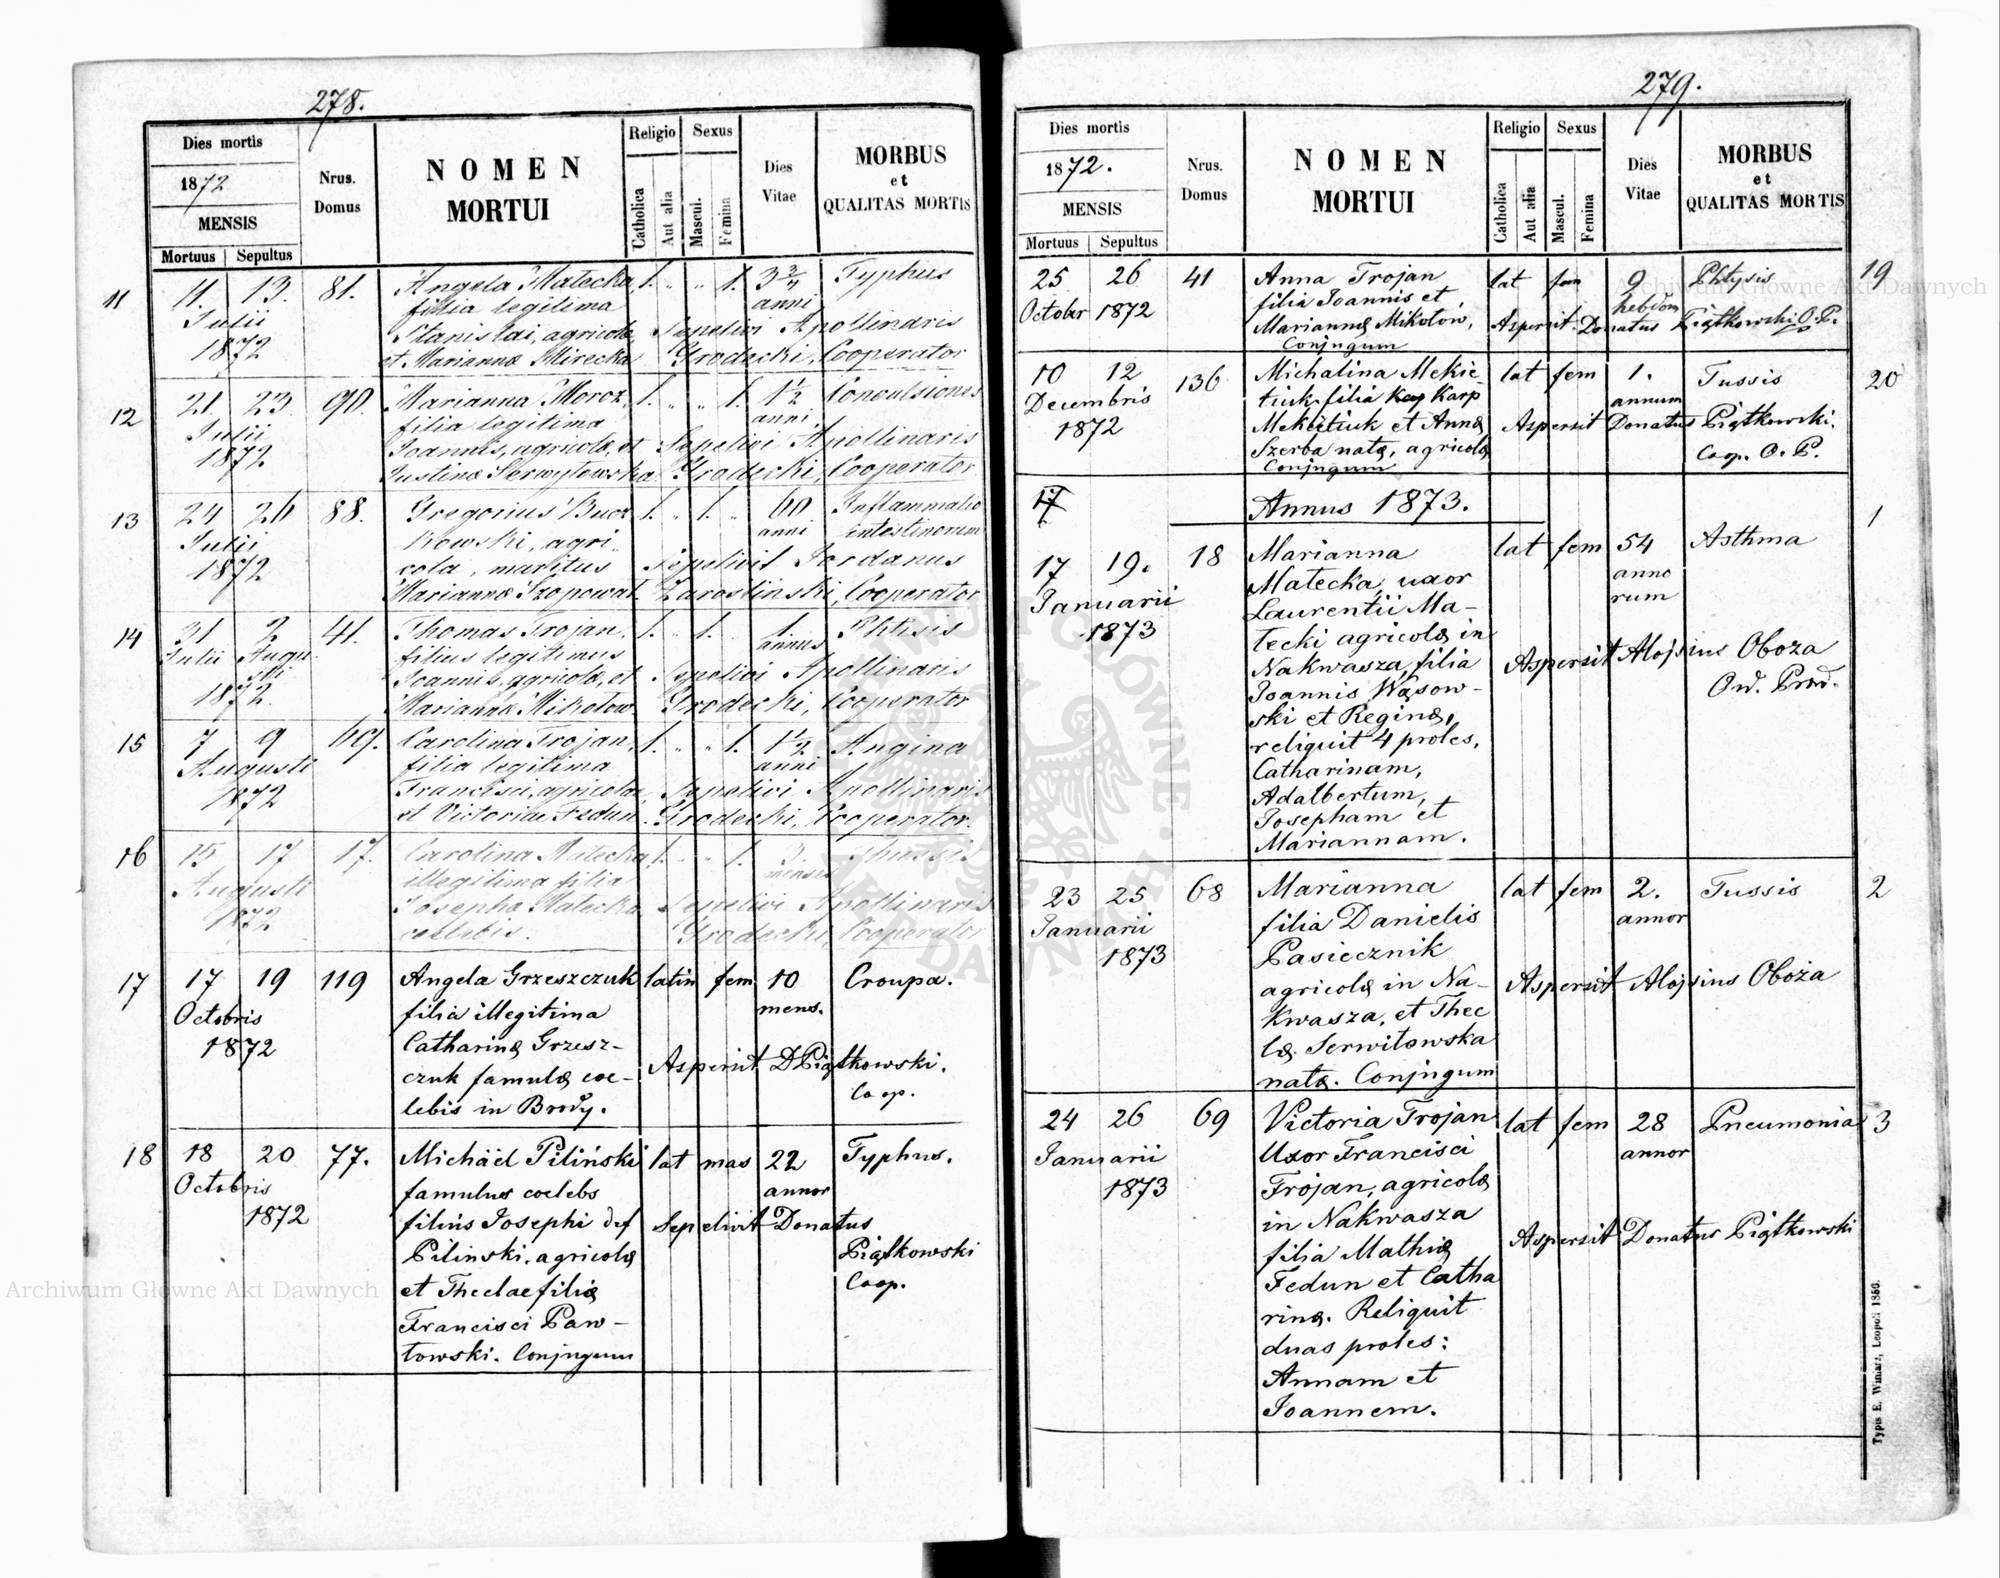 278.
Dies mortis
1872
MENSIS
Mortuus Sepultus
Nrus. Domus
NOMEN MORTUI
Religio
Catholica
Aut alia
Sexus
Mascul.
Femina
Dies Vitae
MORBUS
et
QUALITAS MORTIS
11 11. 13. 81. Angela Małecka 1. „ „ 1. 3 3/4 Typhus
Julii filia legitima anni
1872 Stanislai, agricolæ Sepelivi Apollinaris
et Marianna Mirecka Grodecki, Cooperator
12 21. 23 90. Marianna Moroz, 1. „ „ 1. 1 1/2 Convulsiones
Julii filia legitima anni
1872 Joannis, agricolæ, et Sepelivi Apollinaris
Justinæ Serwytowska Grodecki, Cooperator
13 24 26 88. Gregorius Bucz 1. „ 1. „ 60 Inflammatio
Julii kowski, agri„ anni intestinorum
1872 cola, maritus Sepelivit Jordanus
Mariannæ Szopowat Zaroslinski, Cooperator
14 31 2 41. Thomas Trojan, 1. „ 1. 1 Phtisis
Julii Augu filius legitimus annus
sti Joannis, agricolæ, et Sepelivi Apollinaris
1872. Mariannæ Mikołow. Grodecki, Cooperator
15 7 9 69. Carolina Trojan, 1. „ „ 1. 1 1/2 Angina
Augusti filia legitima anni
1872 Francisci, agricolae, Sepelivi Apollinaris
et Victoriae Fedun. Grodecki, Cooperator.
16 15 17 17. Carolina Małecka 1. „ „ 1. 3.
Augusti illegitima filia menses
1872 Josepha Małecka Sepelivi Apollinaris
coelebis. Grodecki, Cooperator
17 17 19 119 Angela Grzeszczuk latin fem 10 Croupa.
Octobris filia illegitima mens.
1872 Catharinæ Grzesz-
czuk famulæ coe- Aspersit D Piątkowski.
lebis in Brody. Coop.
18 18 20 77. Michaël Piliński lat mas 22 Typhus.
Octobris famulus coelebs annor
1872 filius Josephi def Sepelivit Donatus
Pilinski, agricolæ Piątkowski
et Theclae filiæ Coop.
Francisci Paw-
łowski. Conjugum
279.
Dies mortis
1872.
MENSIS
Mortuus Sepultus
Nrus. Domus
NOMEN MORTUI
Religio
Catholica
Aut alia
Sexus
Mascul.
Femina
Dies Vitae
MORBUS
et
QUALITAS MORTIS
25 26 41 Anna Trojan lat fem 9 Phtysis 19
October 1872 filia Joannis et hebdom
Mariannæ Mikołow, Aspersit Donatus Piątkowski O.P.
Conjugum
10 12 136 Michalina Mekie- lat fem 1. Tussis 20
Decembris tiuk filia Karp annum
1872 Mekietiuk et Annæ Aspersit Donatus Piątkowski.
Szerba natæ, agricolæ Coop. O. P.
Conjugum
17 Annus 1873.
17 19. 18 Marianna lat fem 54 Asthma 1
Januarii Małecka, uxor anno
1873 Laurentii Ma- rum
łecki agricolæ in
Nakwasza, filia Aspersit Alojsius Oboza
Joannis Wąsow- Ord. Præd.
ski et Reginæ,
reliquit 4 proles,
Catharinam,
Adalbertum,
Josepham et
Mariannam.
23 25 68 Marianna lat fem 2. Tussis 2
Januarii filia Danielis annor
1873 Pasiecznik
agricolæ in Na- Aspersit Alojsius Oboża
kwasza, et Thec
læ Serwitowska
natæ. Conjugum
24 26 69 Victoria Trojan lat fem 28 Pneumonia 3
Januarii Uxor Francisci annor
1873 Trojan, agricolæ
in Nakwasza Aspersit Donatus Piątkowski
filia Mathiæ
Fedun et Catha
rinæ. Reliquit
duas proles:
Annam et
Joannem.
Typis E. Winiarz, Leopoli 1856.
Archiwum Główne Akt Dawnych
Archiwum Główne Akt Dawnych
ARCHIWUM GŁÓWNE AKT DAWNYCH